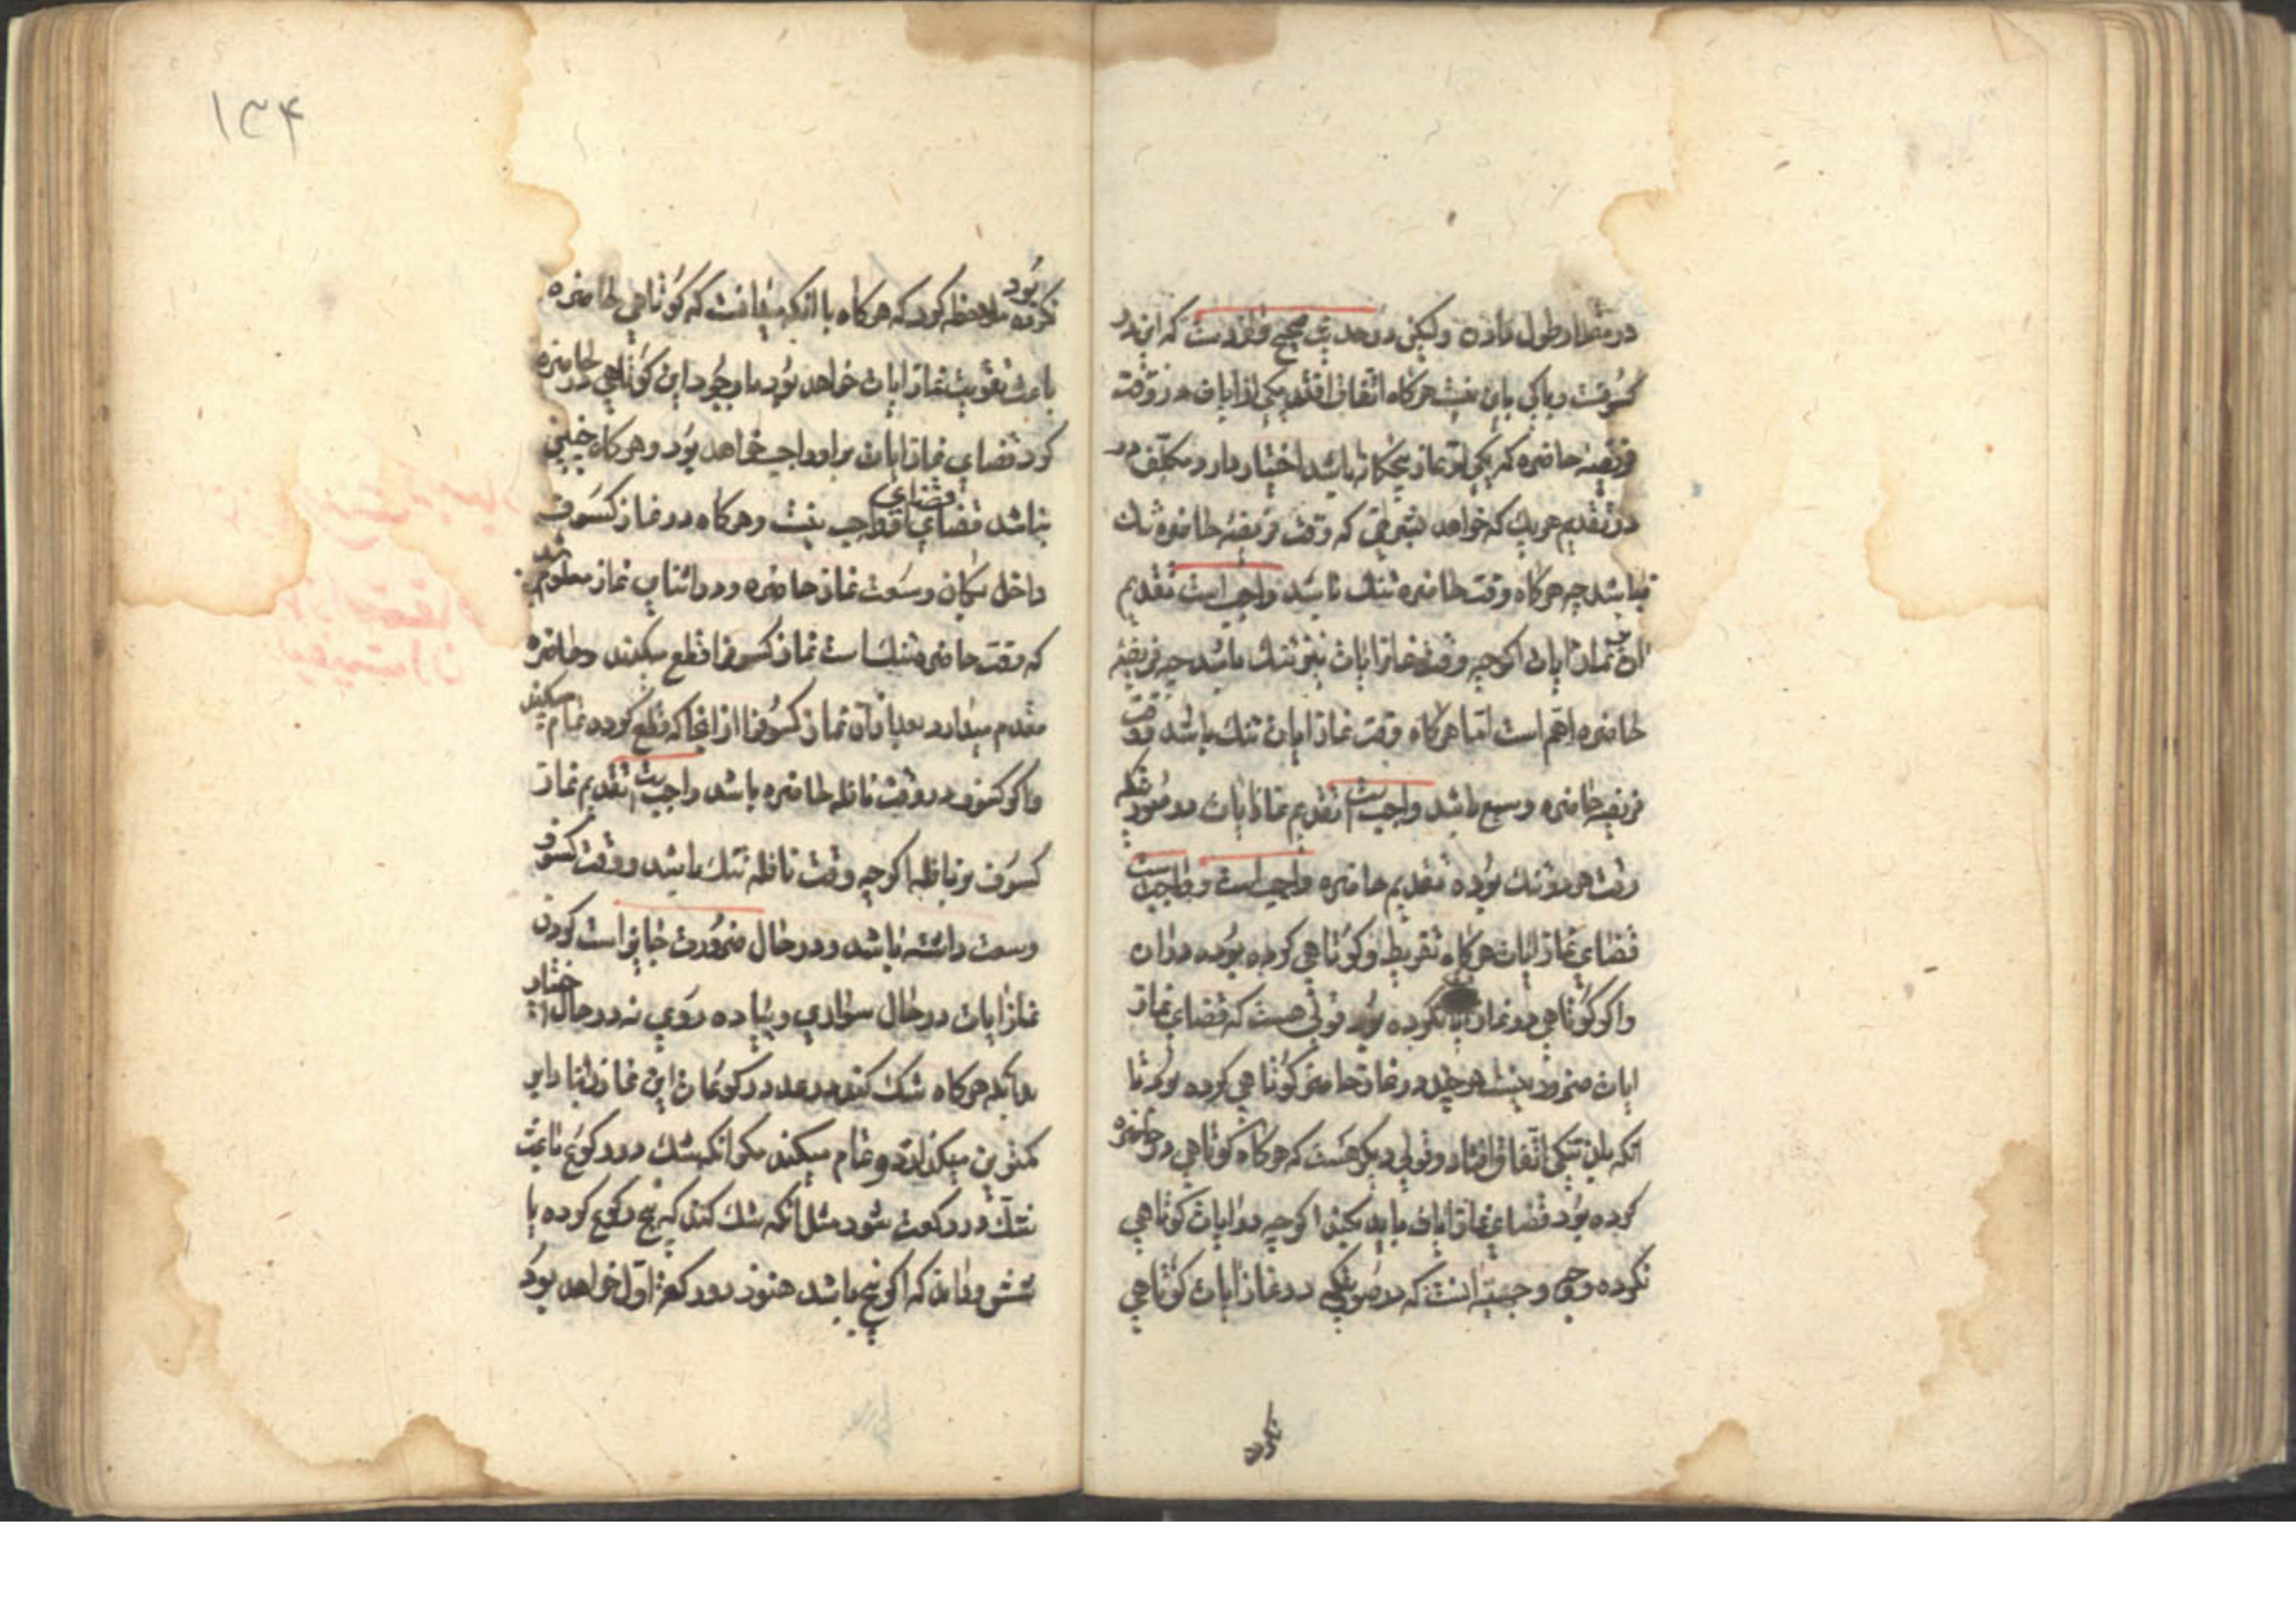 در مقدار طول نماز ه ولیکن در حدیث صحیح وارد است که این در
کسوفست و باکی باین نیست هرکاه اتفاق افتد یکی از ایات در وقت
فریضه حاضره که یکی از نماز پنجکانه باشد اختیار دارد مکلف در
در تقدیم هریک که خواهد بشرطی که وقت فریضهٔ حاضره تنک
نباشد چه هرکاه وقت حاضره تنک باشد واجب است تقدیم
ان بر نماز ایات اکرچه وقت نماز ایات نیز تنک باشد چه فریضهٔ
حاضره اهم است اما هرکاه وقت نماز ایات تنک باشد و وقت
فریضه حاضره وسیع باشد واجبست تقدیم نماز ایات در صورتیکه
وقت هر دو تنک بوده تقدیم حاضره واجب است و واجبست
قضای نماز ایات هرکاه تفریط و کوتاهی کرده بوده در ان
واکر کوتاهی در نماز ایات نکرده بود قولی هست که قضای نماز
ایات ضرور نیست هرچند در نماز حاضره کوتاهی کرده بود تا
انکه باین تنکی اتفاق افتاد و قولی دیکر هست که هرکاه کوتاهی در حاضره
کرده بود قضای نماز ایات باید بکند اکرچه در ایات کوتاهی
نکرده و وجه وجیه انست که در صورتیکه در نماز ایات کوتاهی
نکرده
۱۳۴
نکرده بود ملاحظه کرد که هرکاه با انکه میدانست که کوتاهی حاضره
باعث تفویت نماز ایات خواهد بود با وجود این کوتاهی در حاضره
کرد قضای نماز ایات بر او واجب خواهد بود و هرکاه چنین
نباشد قضای او واجب نیست و هرکاه در نماز کسوف
داخل بکمان وسعت نماز حاضره و در اثنای نماز معلوم شد
که وقت حاضره تنک است نماز کسوف را قطع میکند و حاضره
مقدم میدارد بعد از ان نماز کسوف را از انجا که قطع کرده تمام میکند
واکر کسوف در وقت نافله حاضره باشد واجبست تقدیم نماز
کسوف بر نافله اکرچه وقت نافله تنک باشد و وقت کسوف
وسعت داشته باشد و در حال ضرورت جایز است کردن
نماز ایات در حال سواری و پیاده روی نه در حال اختیار
بدانکه هرکاه شک کند در عدد رکوعات این نماز بنا را بر
کمترین میکذارد و تمام میکند مکر انکه شک در رکوع باعث
شک در رکعت شود مثل انکه شک کند که پنج رکوع کرده یا
شش و داند که اکر پنج باشد هنوز در رکعة اول خواهد بود